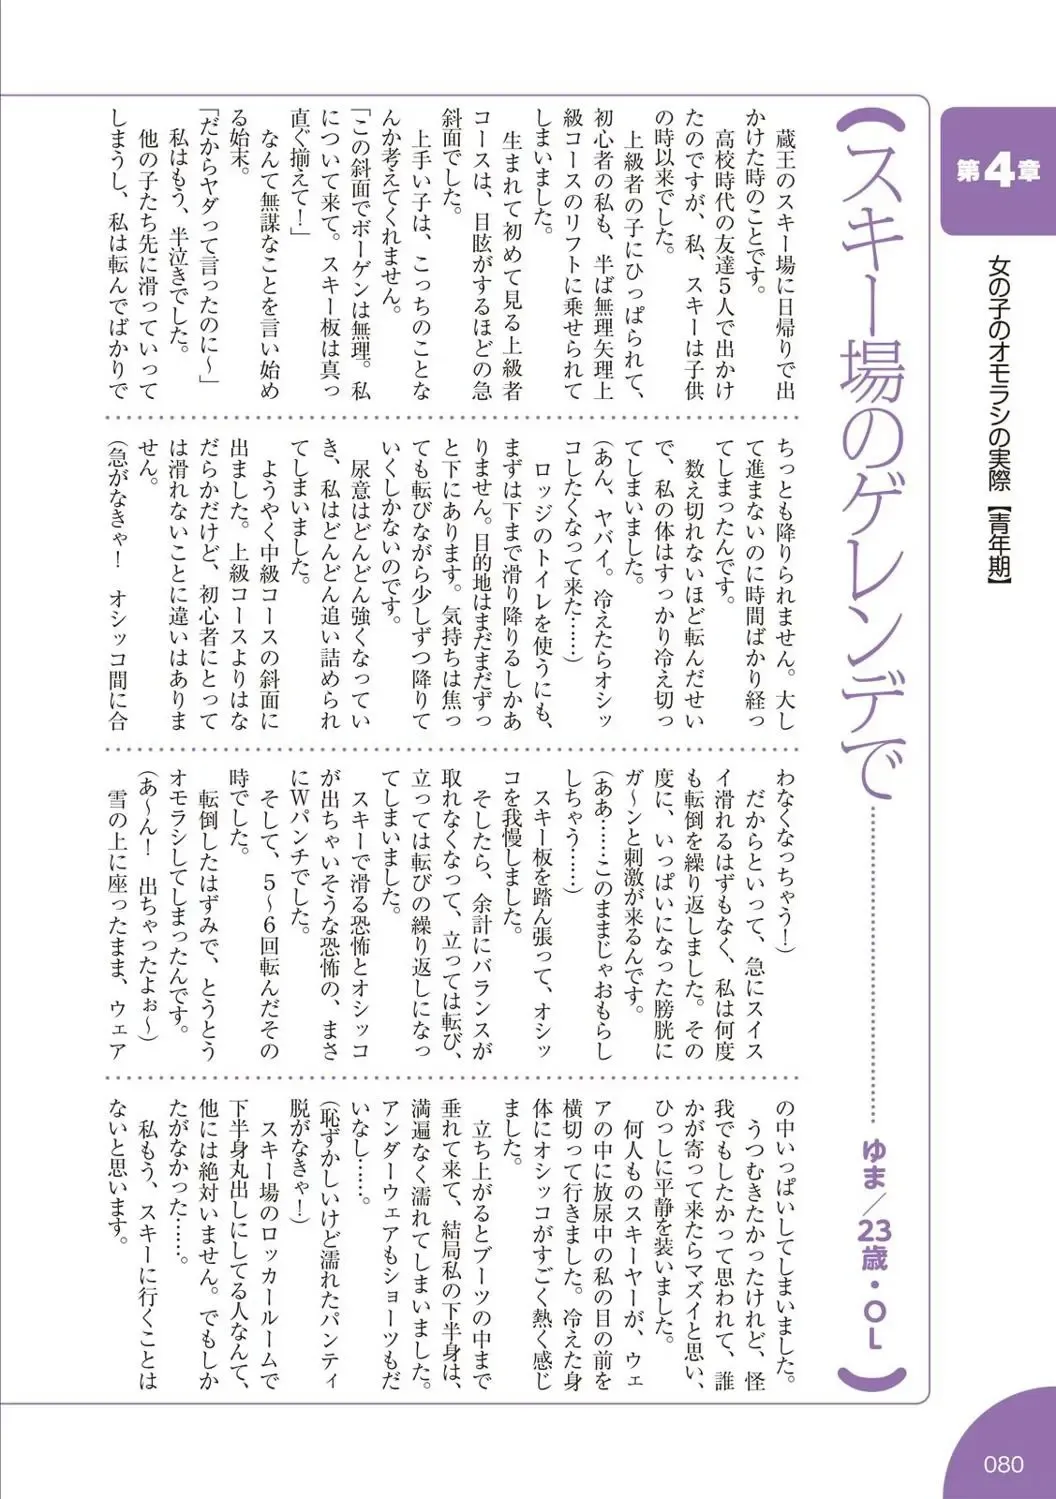 第4章
女の子のオモラシの実際【青年期】
スキー場のゲレンデで
ゆま／23歳・OL
蔵王のスキー場に日帰りで出
かけた時のことです。
高校時代の友達5人で出かけ
たのですが、私、スキーは子供
の時以来でした。
上級者の子にひっぱられて、
初心者の私も、半ば無理矢理上
級コースのリフトに乗せられて
しまいました。
生まれて初めて見る上級者
コースは、目眩がするほどの急
斜面でした。
上手い子は、こっちのことな
んか考えてくれません。
「この斜面でボーゲンは無理。私
について来て。スキー板は真っ
直ぐ揃えて！」
なんて無謀なことを言い始め
る始末。
「だからヤダって言ったのに〜」
私はもう、半泣きでした。
他の子たち先に滑っていって
しまうし、私は転んでばかりで
ちっとも降りられません。大し
て進まないのに時間ばかり経っ
てしまったんです。
数え切れないほど転んだせい
で、私の体はすっかり冷え切っ
てしまいました。
（あん、ヤバイ。冷えたらオシッ
コしたくなって来た……）
ロッジのトイレを使うにも、
まずは下まで滑り降りるしかあ
りません。目的地はまだまだずっ
と下にあります。気持ちは焦っ
ても転びながら少しずつ降りて
いくしかないのです。
尿意はどんどん強くなってい
き、私はどんどん追い詰められ
てしまいました。
ようやく中級コースの斜面に
出ました。上級コースよりはな
だらかだけど、初心者にとって
は滑れないことに違いはありま
せん。
（急がなきゃ！　オシッコ間に合
わなくなっちゃう！）
だからといって、急にスイス
イ滑れるはずもなく、私は何度
も転倒を繰り返しました。その
度に、いっぱいになった膀胱に
ガ〜ンと刺激が来るんです。
（ああ……このままじゃおもらし
しちゃう……）
スキー板を踏ん張って、オシッ
コを我慢しました。
そしたら、余計にバランスが
取れなくなって、立っては転び、
立っては転びの繰り返しになっ
てしまいました。
スキーで滑る恐怖とオシッコ
が出ちゃいそうな恐怖の、まさ
にWパンチでした。
そして、5〜6回転んだその
時でした。
転倒したはずみで、とうとう
オモラシしてしまったんです。
（あ〜ん！　出ちゃったよぉ〜）
雪の上に座ったまま、ウェア
の中いっぱいしてしまいました。
うつむきたかったけれど、怪
我でもしたかって思われて、誰
かが寄って来たらマズイと思い、
ひっしに平静を装いました。
何人ものスキーヤーが、ウェ
アの中に放尿中の私の目の前を
横切って行きました。冷えた身
体にオシッコがすごく熱く感じ
ました。
立ち上がるとブーツの中まで
垂れて来て、結局私の下半身は、
満遍なく濡れてしまいました。
アンダーウェアもショーツもだ
いなし……。
（恥ずかしいけど濡れたパンティ
脱がなきゃ！）
スキー場のロッカールームで
下半身丸出しにしてる人なんて、
他には絶対いません。でもしか
たがなかった……。
私もう、スキーに行くことは
ないと思います。
080